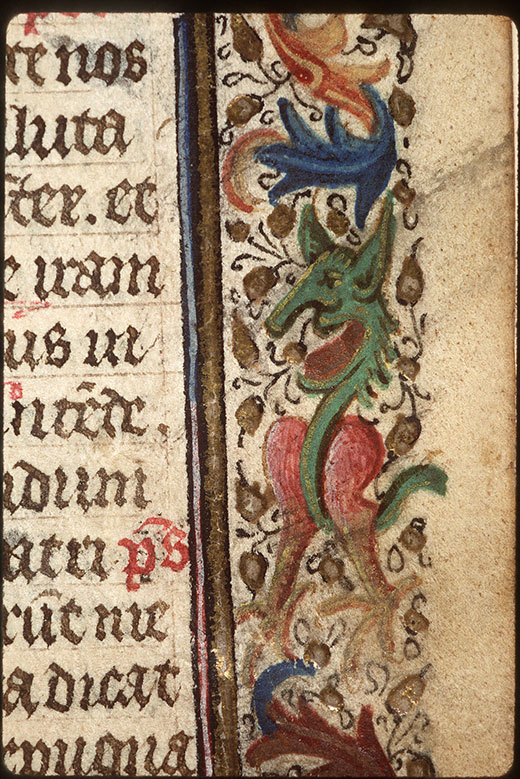 re nos
luta
ter. et
e iram
us in
ntēde.
dum
atri ps
rūt me
a dicat
epugna